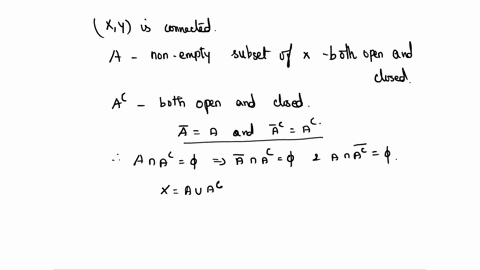 (X,Y) is connected.
A - non-empty subset of x - both open and closed.
A^c - both open and closed.
A̅ = A and A̅^c = A^c.
∴ A ∩ A^c = ϕ ⇒ A̅ ∩ A^c = ϕ & A ∩ \overline{A^c} = ϕ.
X = A ∪ A^c